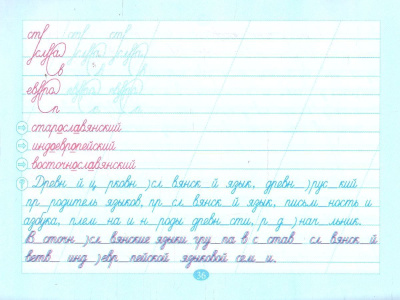 старославянский
индоевропейский
восточнославянский
Древн й ц рковн )сл вянск й язык, древн )рус кий
пр родитель языков, пр сл вянск й язык, письм ность и
азбука, плем на и н роды древн сти, р д )нач льник.
В сточн )сл вянские языки гру па в с став сл вянск й
ветв инд )евр пейской языковой сем и.
36